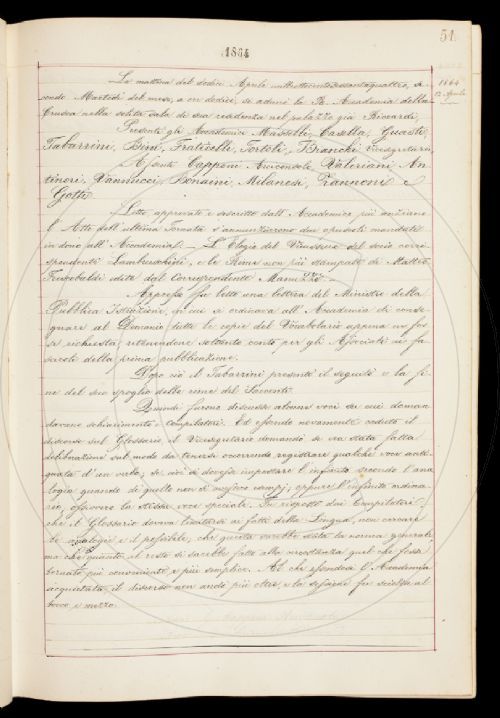 51
1864
1864
12 Aprile
La mattina del dodici Aprile milleottocentosessantaquattro, se-
condo Martedì del mese, a ore dodici, si adunò la R. Accademia della
Crusca nella solita sala di sua residenza nel palazzo già Riccardi.
Presenti gli Accademici Masselli, Casella, Guasti,
Tabarrini, Bini, Fraticelli, Tortoli, e Bianchi Vicesegretario
Assenti Capponi Arciconsolo Valeriani An-
tinori, Vannucci, Bonaini, Milanesi, Zannoni e
Gotti
Letto approvato e soscritto dall'Accademico più anziano
l'Atto dell'ultima Tornata s'annunziarono due opuscoli mandati
in dono all'Accademia. — L'Elogio del Vieusseux del socio corri-
spondente Lambruschini, e le Rime non più stampate di Matteo
Frescobaldi edite dal Corrispondente Manuzzi. —
Appresso fu letta una lettera del Ministro della
Pubblica Istruzione, in cui si ordinava all'Accademia di conse-
gnare al Demanio tutte le copie del Vocabolario appena ne fos-
se richiesta, ritenendone soltanto cento per gli Associati ai fa-
scicoli della prima pubblicazione.
Dopo ciò il Tabarrini presentò il seguito e la fi-
ne del suo spoglio delle rime del Sacconti.
Quindi furono discusse alcune voci su cui doman-
davano schiarimento i Compilatori. Ed essendo novamente caduto il
discorso sul Glossario, il Vicesegretario domandò se era stata fatta
deliberazione sul modo da tenersi occorrendo registrare qualche voce anti-
quata d'un verbo; se cioè si dovesse impostare l'infinito secondo l'ana-
logia quando di quello non si avesse esempj; oppure l'infinito ordina-
rio, ovvero la stessa voce speciale. Fu risposto dai Compilatori
che il Glossario doveva limitarsi ai fatti della Lingua, non cercare
le analogie e il possibile, che questa sarebbe stata la norma generale
ma che quanto al resto si sarebbe fatto alla circostanza quel che fosse
tornato più conveniente e più semplice. Al che essendosi l'Accademia
acquietata, il discorso non andò più oltre, e la sessione fu sciolta al
tocco e mezzo.